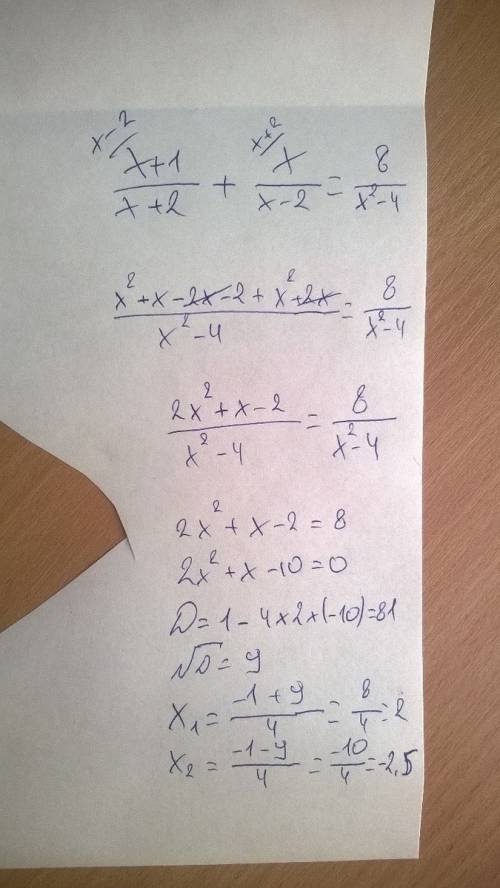 x-2/ x+2/
(x+1)/(x+2) + x/(x-2) = 8/(x²-4)
(x²+x-2x-2+x²+2x)/(x²-4) = 8/(x²-4)
(2x²+x-2)/(x²-4) = 8/(x²-4)
2x²+x-2=8
2x²+x-10=0
D=1-4×2×(-10)=81
√D=9
x₁=(-1+9)/4=8/4=2
x₂=(-1-9)/4=-10/4=-2,5